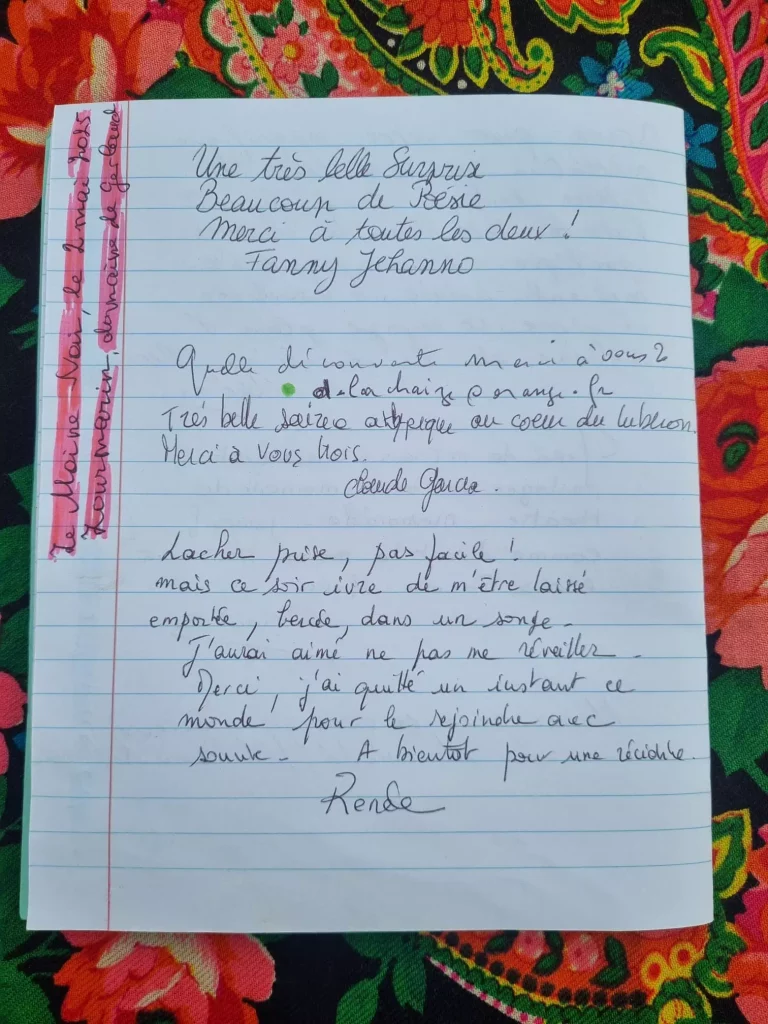 Le Moine Noir, le 2 mai 2025
Lourmarin, domaine de Gerbaud
Une très belle Surprise
Beaucoup de Poésie
Merci à toutes les deux !
Fanny Jehanno
Quelle découverte merci à vous 2
d.lachaize@orange.fr
Très belle soirée atypique au coeur du luberon.
Merci à Vous trois.
Claude Garcia.
Lacher prise, pas facile !
mais ce soir ivre de m'être laissé
emportée, bercée, dans un songe -
J'aurai aimé ne pas me réveiller -
Merci, j'ai quitté un instant ce
monde pour le rejoindre avec
A bientôt pour une récidive.
Renée